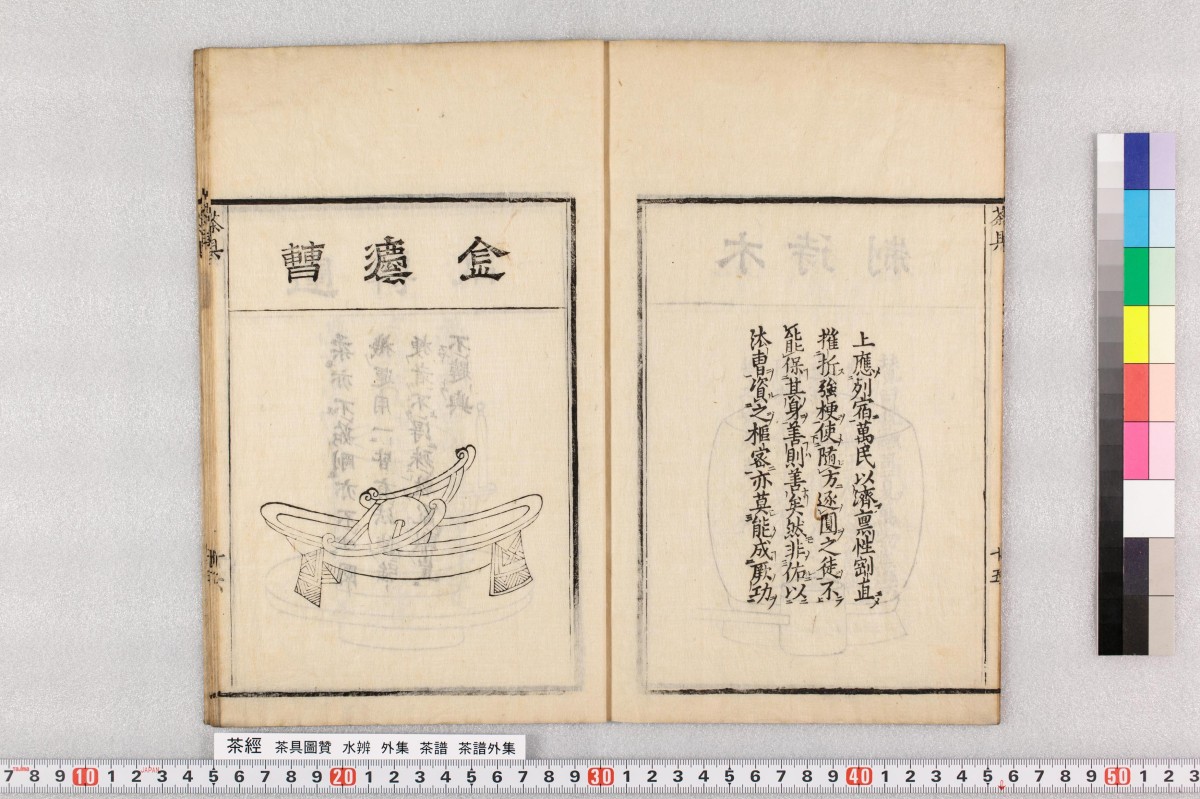 茶具
上應列宿萬民以濟稟性剛直
摧折強梗使隨方逐圓之徒不
能保其身善則善矣然非佑以
法曹資之樞密亦莫能成厥功
十五
金法曹
茶具
茶經 茶具圖贊 水辨 外集 茶譜 茶譜外集
7 8 9 10 1 2 3 4 5 6 7 8 9 20 1 2 3 4 5 6 7 8 9 30 1 2 3 4 5 6 7 8 9 40 1 2 3 4 5 6 7 8 9 50 1 2 3
JAPAN